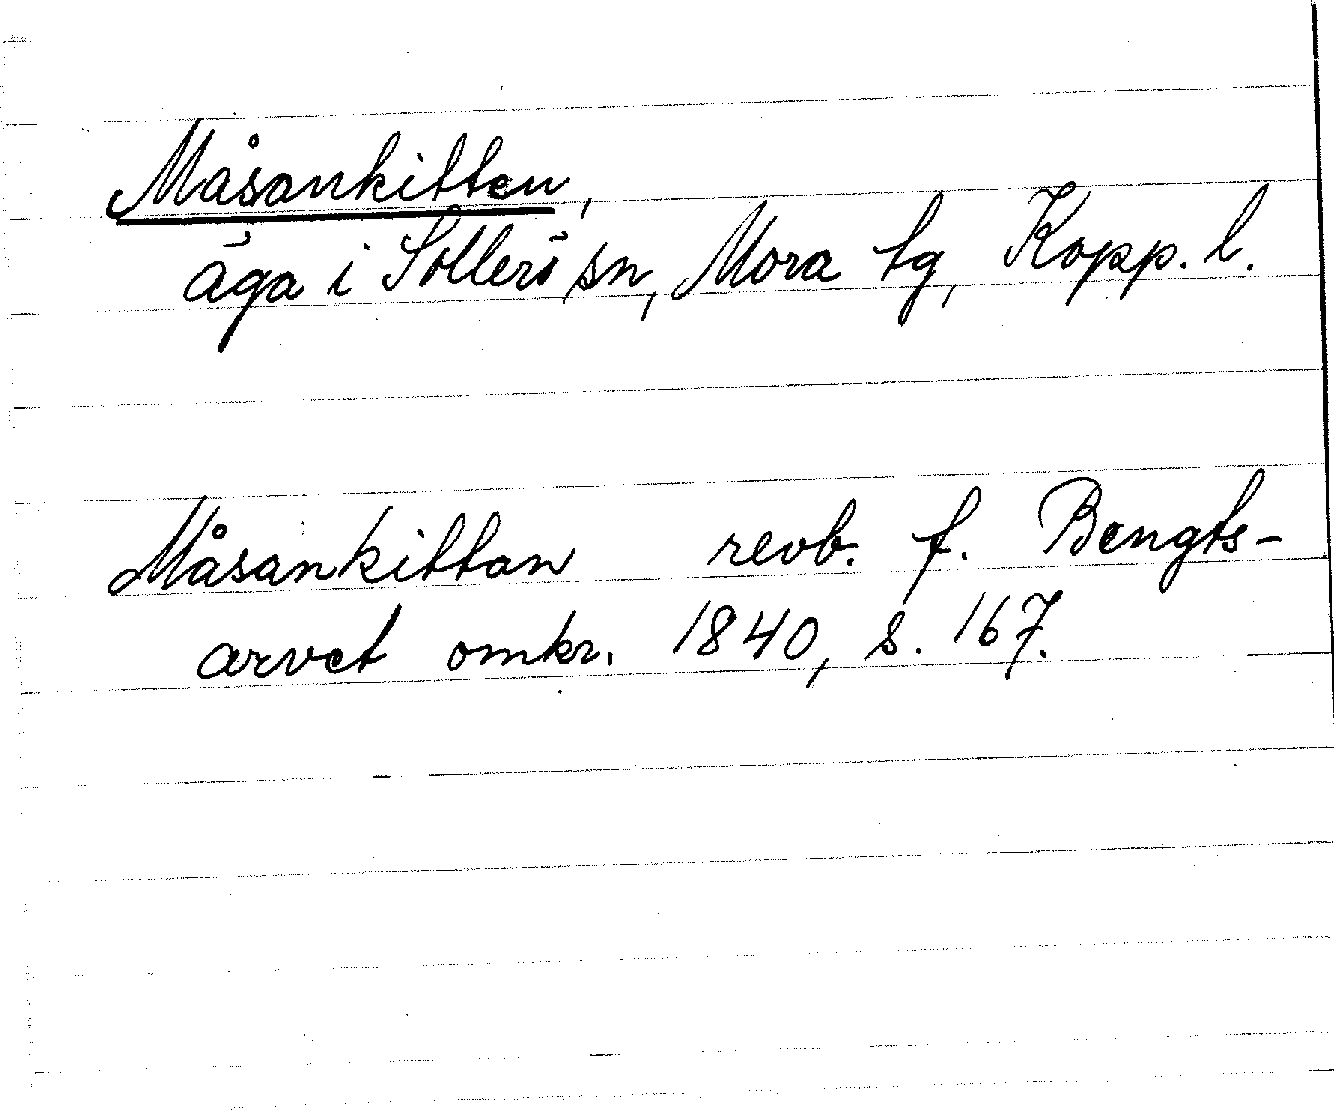 Måsankitten,
äga i Sollerö sn, Mora tg, Kopp. l.
Måsankittan revb. f. Bengts-
arvet omkr. 1840, s. 167.